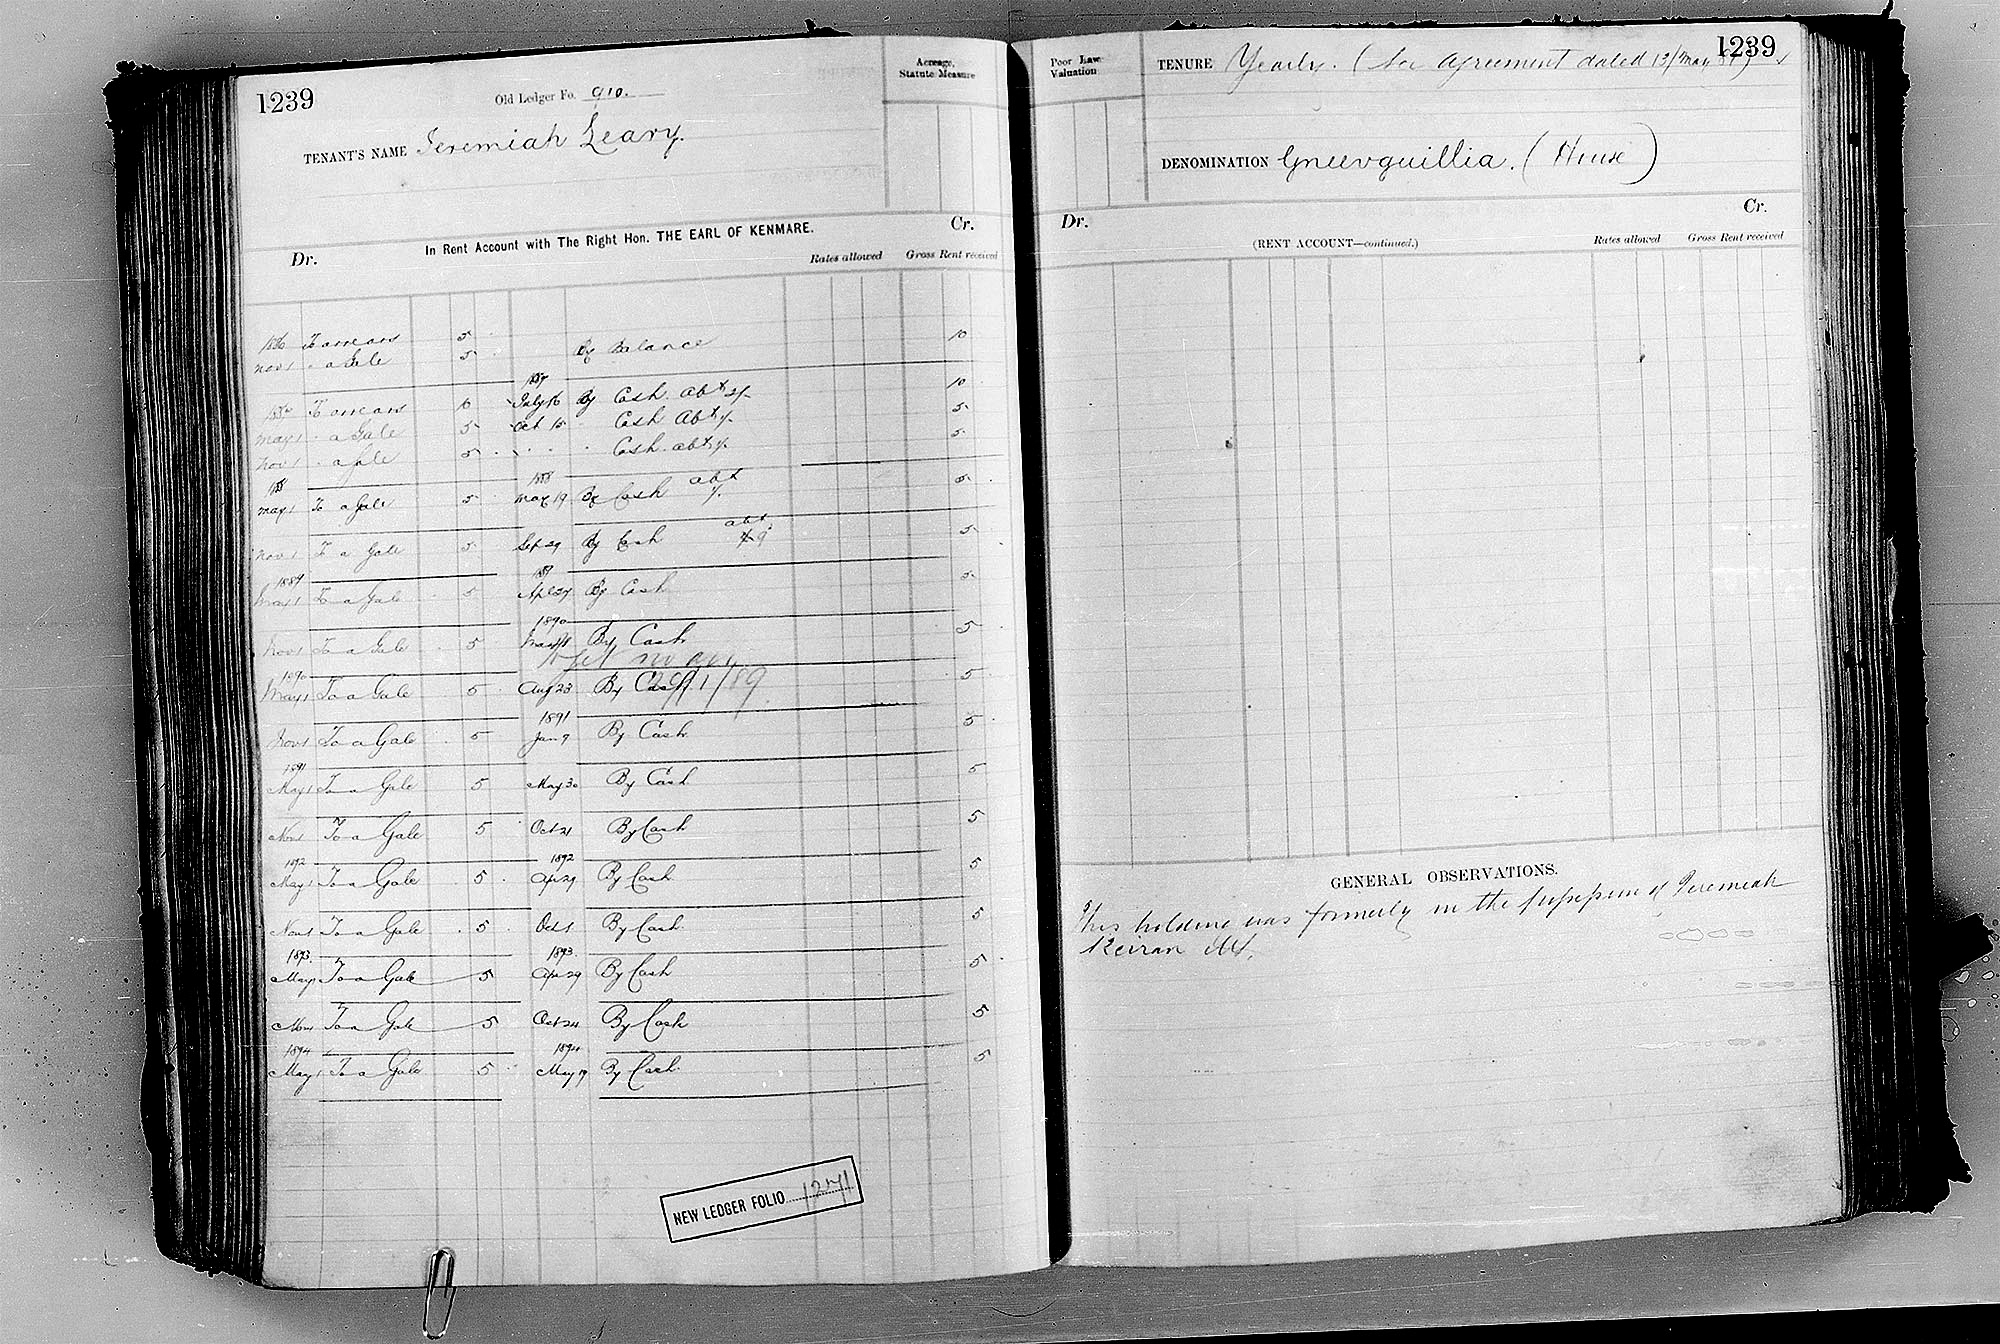 1239
Old Ledger Fo. 910.
TENANT'S NAME Jeremiah Leary.
Acreage, Statute Measure
In Rent Account with The Right Hon. THE EARL OF KENMARE.
Dr. Cr.
Rates allowed Gross Rent received
1886 To arrears 5
Nov 1 " a Gale 5 By Balance 10
1887
To arrears 10 July 16 By Cash abt 10
May 1 " a Gale 5 Oct 15 " Cash Abt 5
Nov 1 " a Gale 5 " " " Cash abt 5
1888 1888 abt
May 1 To a Gale 5 May 19 By Cash 5
abt
Nov 1 To a Gale 5 Sep 29 By Cash 5
1889 1889
May 1 To a Gale 5 Apl 27 By Cash 5
1890
Nov 1 To a Gale 5 By Cash 5
1890
May 1 To a Gale 5 Aug 23 By Cash 5
1891
Nov 1 To a Gale 5 Jan 9 By Cash 5
1891
May 1 To a Gale 5 May 30 By Cash 5
Nov 1 To a Gale 5 Oct 21 By Cash 5
1892 1892
May 1 To a Gale 5 Apr 29 By Cash 5
Nov 1 To a Gale 5 Oct 1 By Cash 5
1893. 1893.
May 1 To a Gale 5 Apr 29 By Cash 5
Nov 1 To a Gale 5 Oct 24 By Cash 5
1894 1894
May 1 To a Gale 5 May 19 By Cash 5
NEW LEDGER FOLIO 1271
1239
Poor Law Valuation
TENURE Yearly. (See agreement dated 13/May
DENOMINATION Gneevguillia. (House)
Dr. Cr.
(RENT ACCOUNT—continued.)
Rates allowed Gross Rent received
GENERAL OBSERVATIONS.
This holding was formerly in the possession of Jeremiah